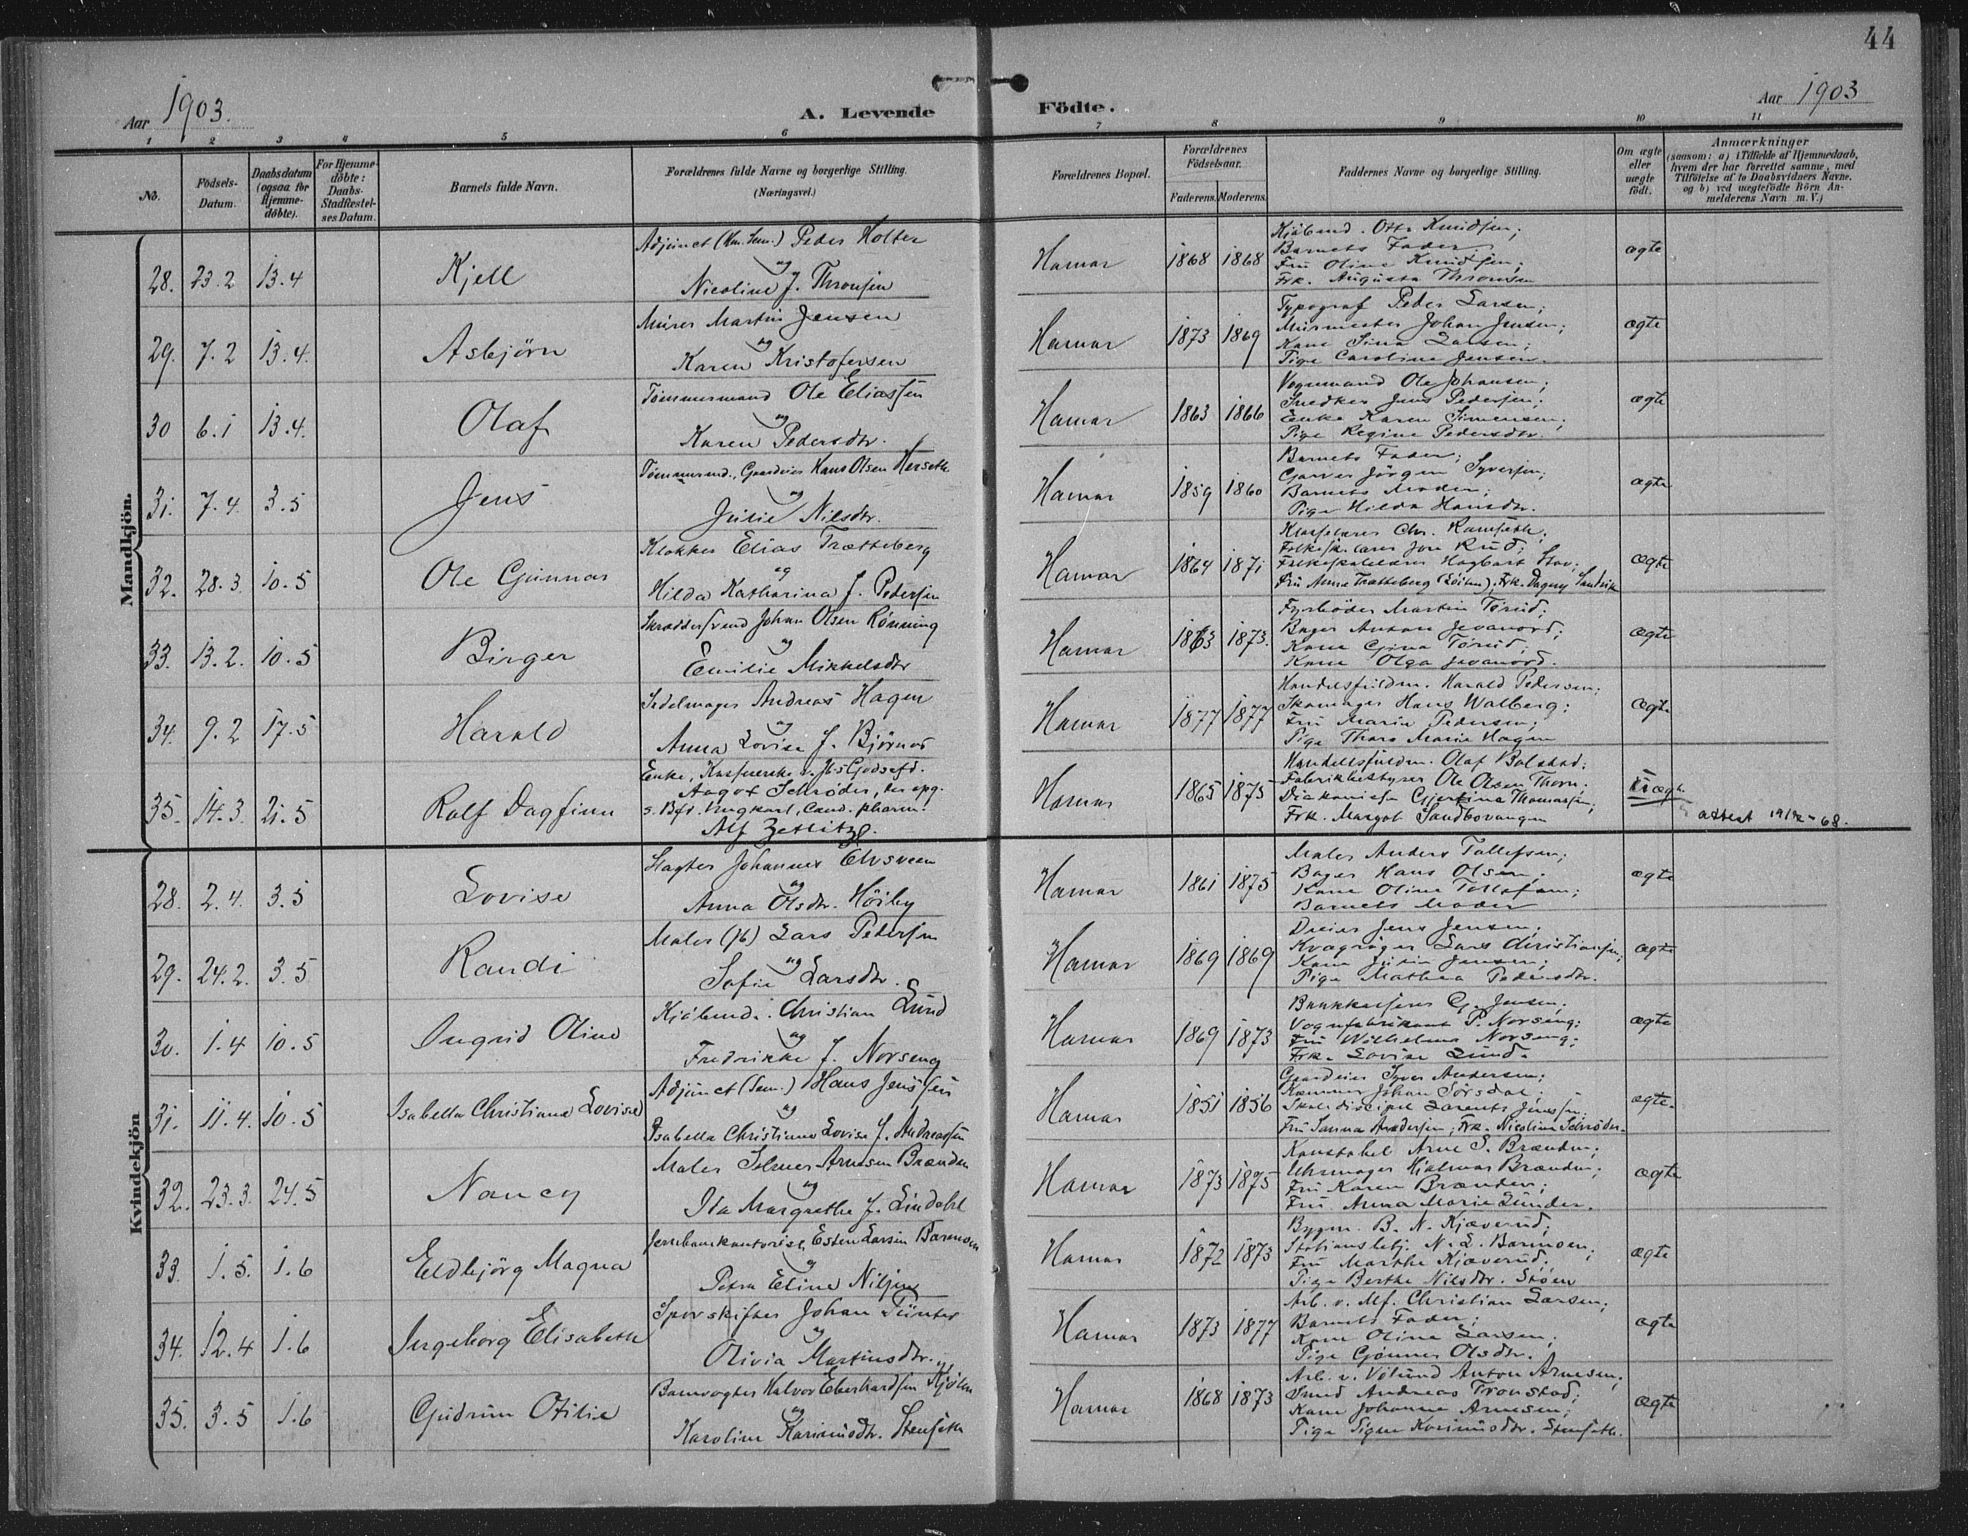 44
Aar 1903.
A. Levende Födte.
Aar 1903
1 2 3 4 5 6 7 8 9 10 11
No.
Födsels-Datum.
Daabsdatum (ogsaa for Hjemme-döbte).
For Hjemme-döbte: Daabs-Stadfæstel-ses Datum.
Barnets fulde Navn.
Forældrenes fulde Navne og borgerlige Stilling.
(Næringsvei.)
Forældrenes Bopæl.
Forældrenes Födselsaar.
Faderens. Moderens.
Faddernes Navne og borgerlige Stilling.
Om ægte eller uægte födt.
Anmærkninger
(saasom: a) i Tilfælde af Hjemmedaab, hvem der har forrettet samme, med Tilföielse af to Daabsvidners Navne. og b) ved uægtefödte Börn An-melderens Navn m. V.)
Mandkjön.
28. 23.2 13.4 Kjell
Adjunct (Km. Sem.) Peder Holter
og
Nicoline f. Thronsen
Hamar 1868 1868
Kjöbmd. Otto Knudsen;
Barnets Fader;
Fru Oline Knudsen;
Frk. Augusta Thronsen
ægte
29. 7.2 13.4. Asbjörn
Murer Martin Jensen
og
Karen Kristofersen
Hamar 1873 1869
Typograf Peder Larsen;
Murmester Johan Jensen;
Kone Sina Larsen;
Pige Caroline Jensen.
ægte
30 6.1 13.4. Olaf
Tömmermand Ole Eliassen
og
Karen Pedersdtr.
Hamar 1863 1866
Vognmand Ole Johansen;
Snedker Jens Pedersen;
Enke Karen Simensen;
Pige Regine Pedersdtr.
ægte
31. 7.4. 3.5 Jens
Tömmermd., Gaardeier Hans Olsen Herseth
og
Julie Nilsdtr.
Hamar 1859 1860
Barnets Fader;
Garver Jörgen Syversen;
Barnets Moder;
Pige Hilda Hansdtr.
ægte
32. 28.3. 10.5 Ole Gunnar
Klokker Elias Trætteberg
og
Hilda Katharina f. Pedersen
Hamar 1864 1871
Klasselærer Chr. Ramseth;
Folkeskolelærer Hagbart Stav;
Fru Anne Trætteberg (Löiten); Frk. Dagny Sandvik
ægte
33. 13.2. 10.5 Birger
Skræddersvend Johan Olsen Rönning
og
Emilie Mikkelsdtr
Hamar 1863 1873.
Fyrböder Martin Törud;
Bager Anton Jevanord;
Kone Gina Törud;
Kone Olga Jevanord.
ægte
34. 9.2 17.5 Harald
Sadelmager Andreas Hagen
og
Anna Lovise f. Björnas
Hamar 1877 1877
Handelsfuldm. Harald Pedersen;
Skomager Hans Walberg;
Fru Marie Pedersen;
Pige Thora Marie Hagen
ægte
35. 14.3. 21.5 Rolf Dagfinn
Aagot Schröder, der opg.
s. Bfd. Ungkarl, Cand. pharm.
Alf Zetlitz.
Hamar 1865 1875
Handelsfuldm. Olaf Bolstad;
Fabrikbestyrer Ole Olsen Thorn;
Diakonisse Gjertine Thomassen;
Frk. Margot Sandbovangen
Uægte
attest 19/12-68.
Kvindekjön
28. 2.4. 3.5 Lovise
Slagter Johannes Elvsveen
og
Anna Olsdtr. Höiby
Hamar 1861 1875
Maler Anders Tollefsen;
Bager Hans Olsen;
Kone Oline Tollefsen;
Barnets Moder
ægte
29. 24.2. 3.5 Randi
Maler (Jb) Lars Pedersen
og
Sofie Larsdtr.
Hamar 1869 1869
Dreier Jens Jensen;
Kvægröger Lars Christiansen;
Kone Julie Jensen;
Pige Mathea Pedersdtr.
ægte
30. 1.4 10.5 Ingrid Oline
Kjöbmd. Christian Lund
og
Fredrikke f. Norseng
Hamar 1869 1873
Bankkasserer G. Jensen;
Vognfabrikant P. Norseng;
Fru Wilhelma Norseng;
Frk. Lovise Lund.
ægte
31. 11.4. 10.5 Isabella Christiane Lovise
Adjunct (Sem.) Hans Jenssen
og
Isabella Christiane Lovise f. Andreassen
Hamar 1851 1856
Gaardeier Syver Andersen;
Kæmner Johan Sörsdal;
Skoledisciple Larents Jenssen;
Fru Sanna Andersen; Frk. Nicoline Schröder.
ægte.
32. 23.3. 24.5 Nancy
Maler Selmer Arnesen Brænden
og
Ida Margrethe f. Lindahl
Hamar 1873 1875
Konstabel Arne S. Brænden;
Uhrmager Hjalmar Brænden;
Fru Karen Brænden;
Fru Anna Marie Lunder.
ægte
33. 1.5. 1.6 Eldbjörg Magna
Jernbanekontorist Esten Larsen Barmoen
og
Petra Eline Nilsen
Hamar 1872 1873
Bygm. B. N. Kjæverud;
Stationsbetj. N. L. Barmoen;
Fru Marthe Kjæverud;
Pige Berthe Nilsdtr. Stöen
ægte
34. 12.4 1.6 Ingeborg Elisabeth
Sporskifter Johan Günter
og
Olivia Martinsdtr.
Hamar 1873 1877
Arb. v. Mf. Christian Larsen;
Barnets Fader;
Kone Oline Larsen;
Pige Gönner Olsdtr.
ægte
35. 3.5 1.6 Gudrun Otilie
Banevogter Halvor Eberhardsen Kjölen
og
Karoline Karinusdtr. Stenseth
Hamar 1868 1873
Arb. v. Völund Anton Arnesen;
Smed Andreas Tronstad;
Kone Johanne Arnesen;
Pige Signe Karinusdtr. Stenseth.
ægte